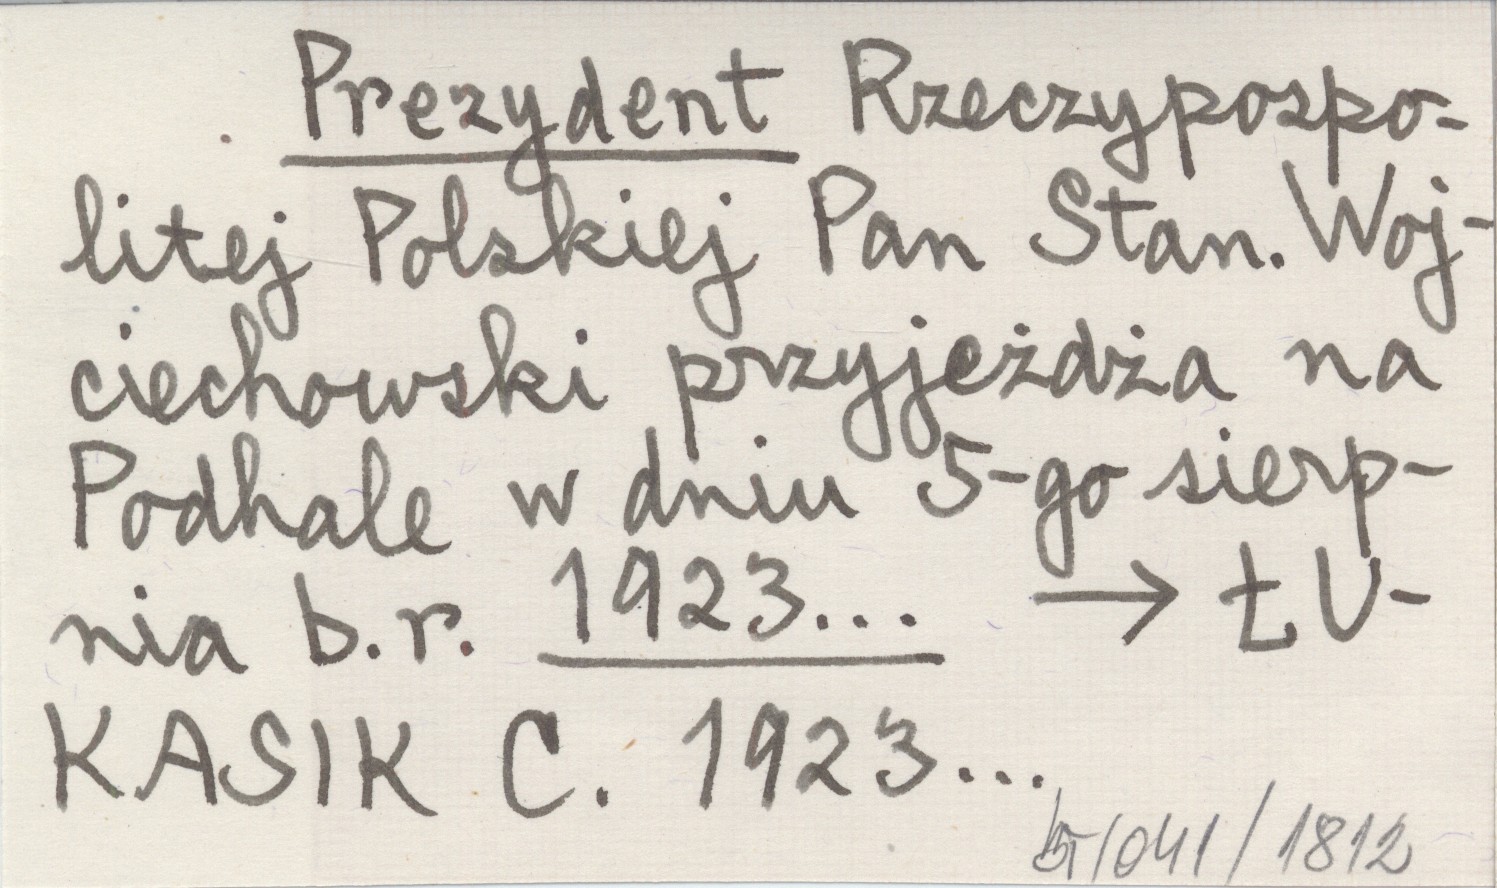 Prezydent Rzeczypospo-
litej Polskiej Pan Stan. Woj-
ciechowski przyjeżdża na
Podhale w dniu 5-go sierp-
nia b.r. 1923... → ŁU-
KASIK C. 1923...
/041/1812